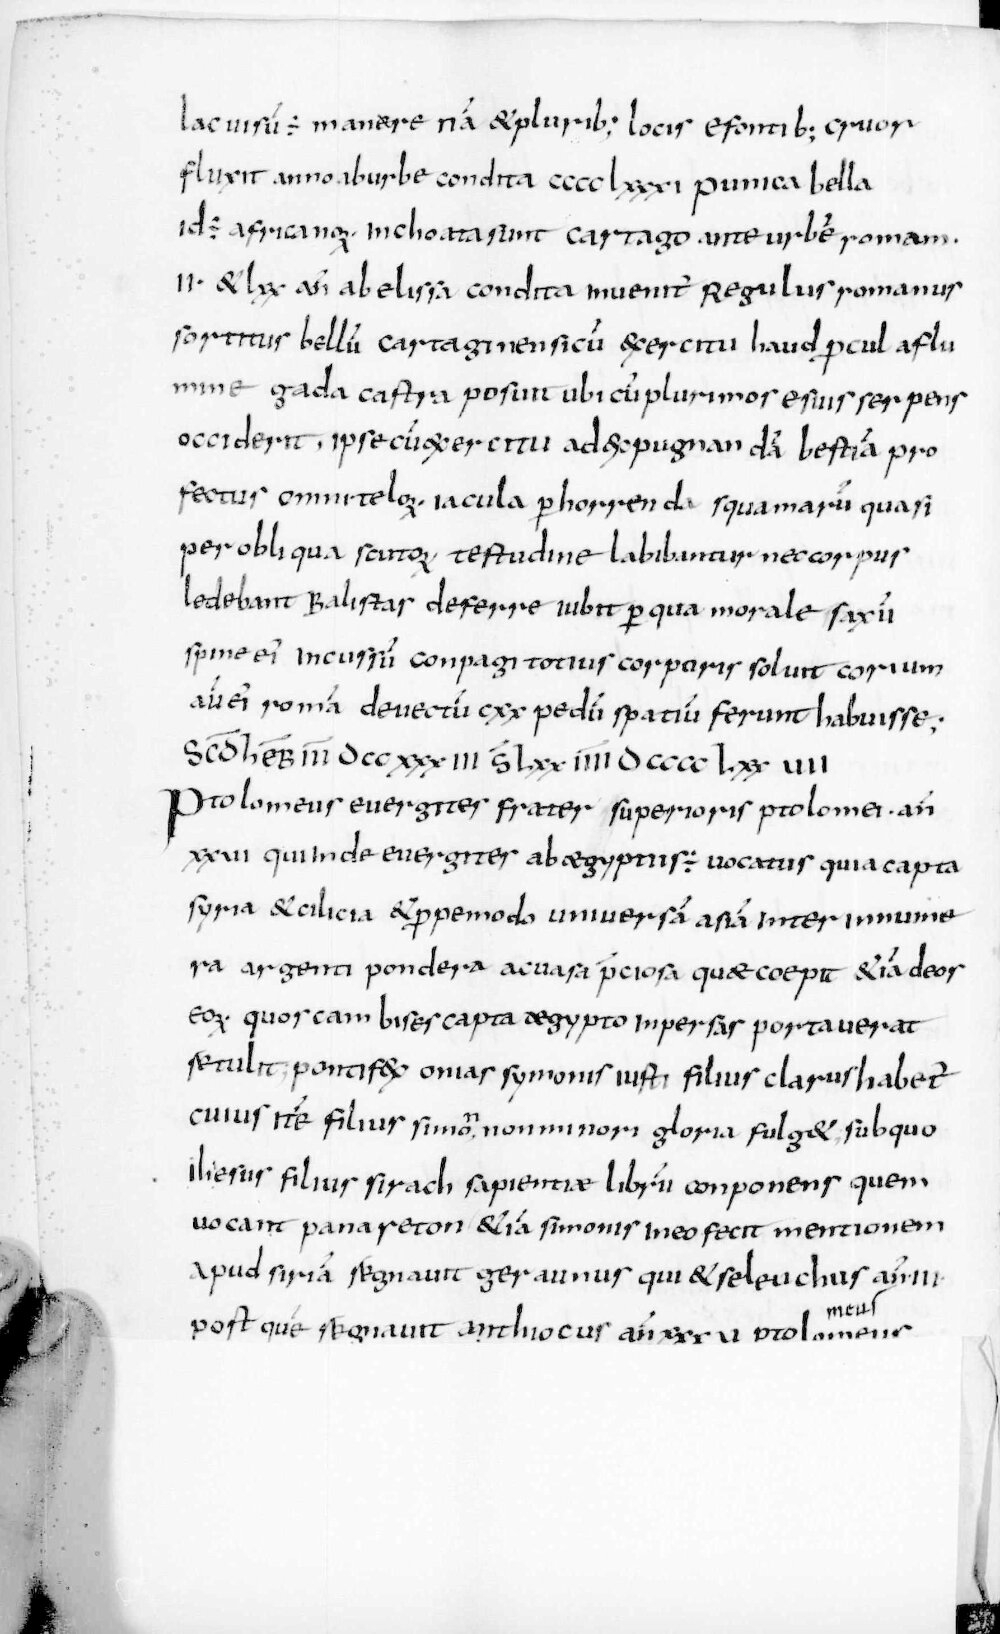 lac uisū÷ manare &iā &plurib; locis efontib; cruor
fluxit anno aburbe condita cccclxxxi punica bella
id÷ africanoꝝ. inchoata sunt cartago ante urbē romam.
II. &lxx añ abelissa condita inuenit̄ Regulus romanus
sortitus bellū cartaginensicū &xercitu haud ꝓcul aflu
mine gada castra posuit ubi cū plurimos esuis serpens
occiderit, ipse cū&xercitu ad&xpugnandā bestiā pro
fectus omni teloꝝ. iacula ꝑhorrenda squamarū quasi
per obliqua scutoꝝ. testudine labibantur nec corpus
ledebant Balistas deferre iubit ꝑ qua morale saxū
spine ei incussū conpagi totius corporis soluit corium
aūei romā deuectū cxx pedū spatiū ferunt habuisse;
Scd̄ heb̄ iii Dccxxxiii S̄ lxx iiii Dcccclxxuii
Ptolomeus euergites frater superioris ptolomei. añ
xxui qui inde euergites ab ægyptiis÷ uocatus quia capta
syria &cilicia &ꝓpemodo uniuersā asiā inter innume
ra argenti pondera acuasa p̄ciosa quæ coepit &iā deos
eoꝝ. quos cambises capta ægypto inpersas portauerat
retulit, pontif&x onias symonis iusti filius clarus habet̄
cuius itē filius simon, non minori gloria fulg&, sub quo
ihesus filius sirach sapientiæ librū conponens quem
uocant panareton &iā simonis in eo fecit mentionem
apud siriā regnauit geraunus qui &seleuchus añ iii.
post quē regnauit anthiocus añ xxxui ptolomeus
meus